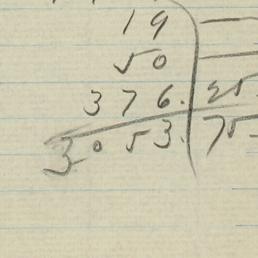 19 —
50 —
376. 25
3053. 75-